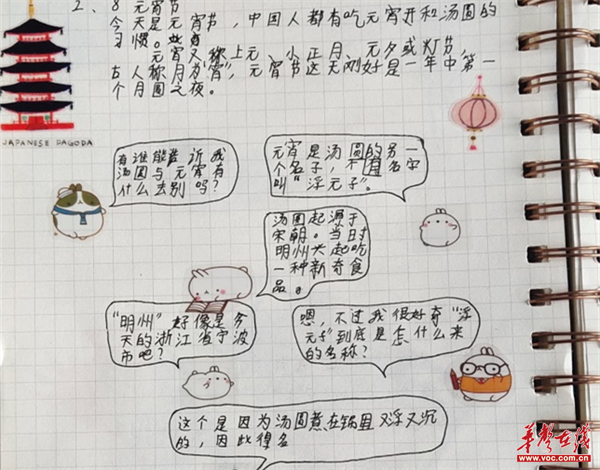 2、8 元宵节
今天是元宵节，中国人都有吃元宵并和汤圆的
习惯。
元宵又称上元、小正月、元夕或灯节，
古人称月为"宵"，元宵节这天刚好是一年中第一
个月圆之夜。
JAPANESE PAGODA
有谁能告诉我
汤圆与元宵有
什么去别吗？
元宵是汤圆的另一
个名子，
叫"浮元子"。
汤圆起源于
宋朝。当时
明州兴起吃
一种新奇食
品。
"明州"好像是今
天的浙江省宁波
市吧？
嗯，不过我很好奇"浮
元子"到底是怎什么来
的名称？
这个是因为汤圆煮在锅里又浮又沉
的，因此得名
华声在线
www.voc.com.cn